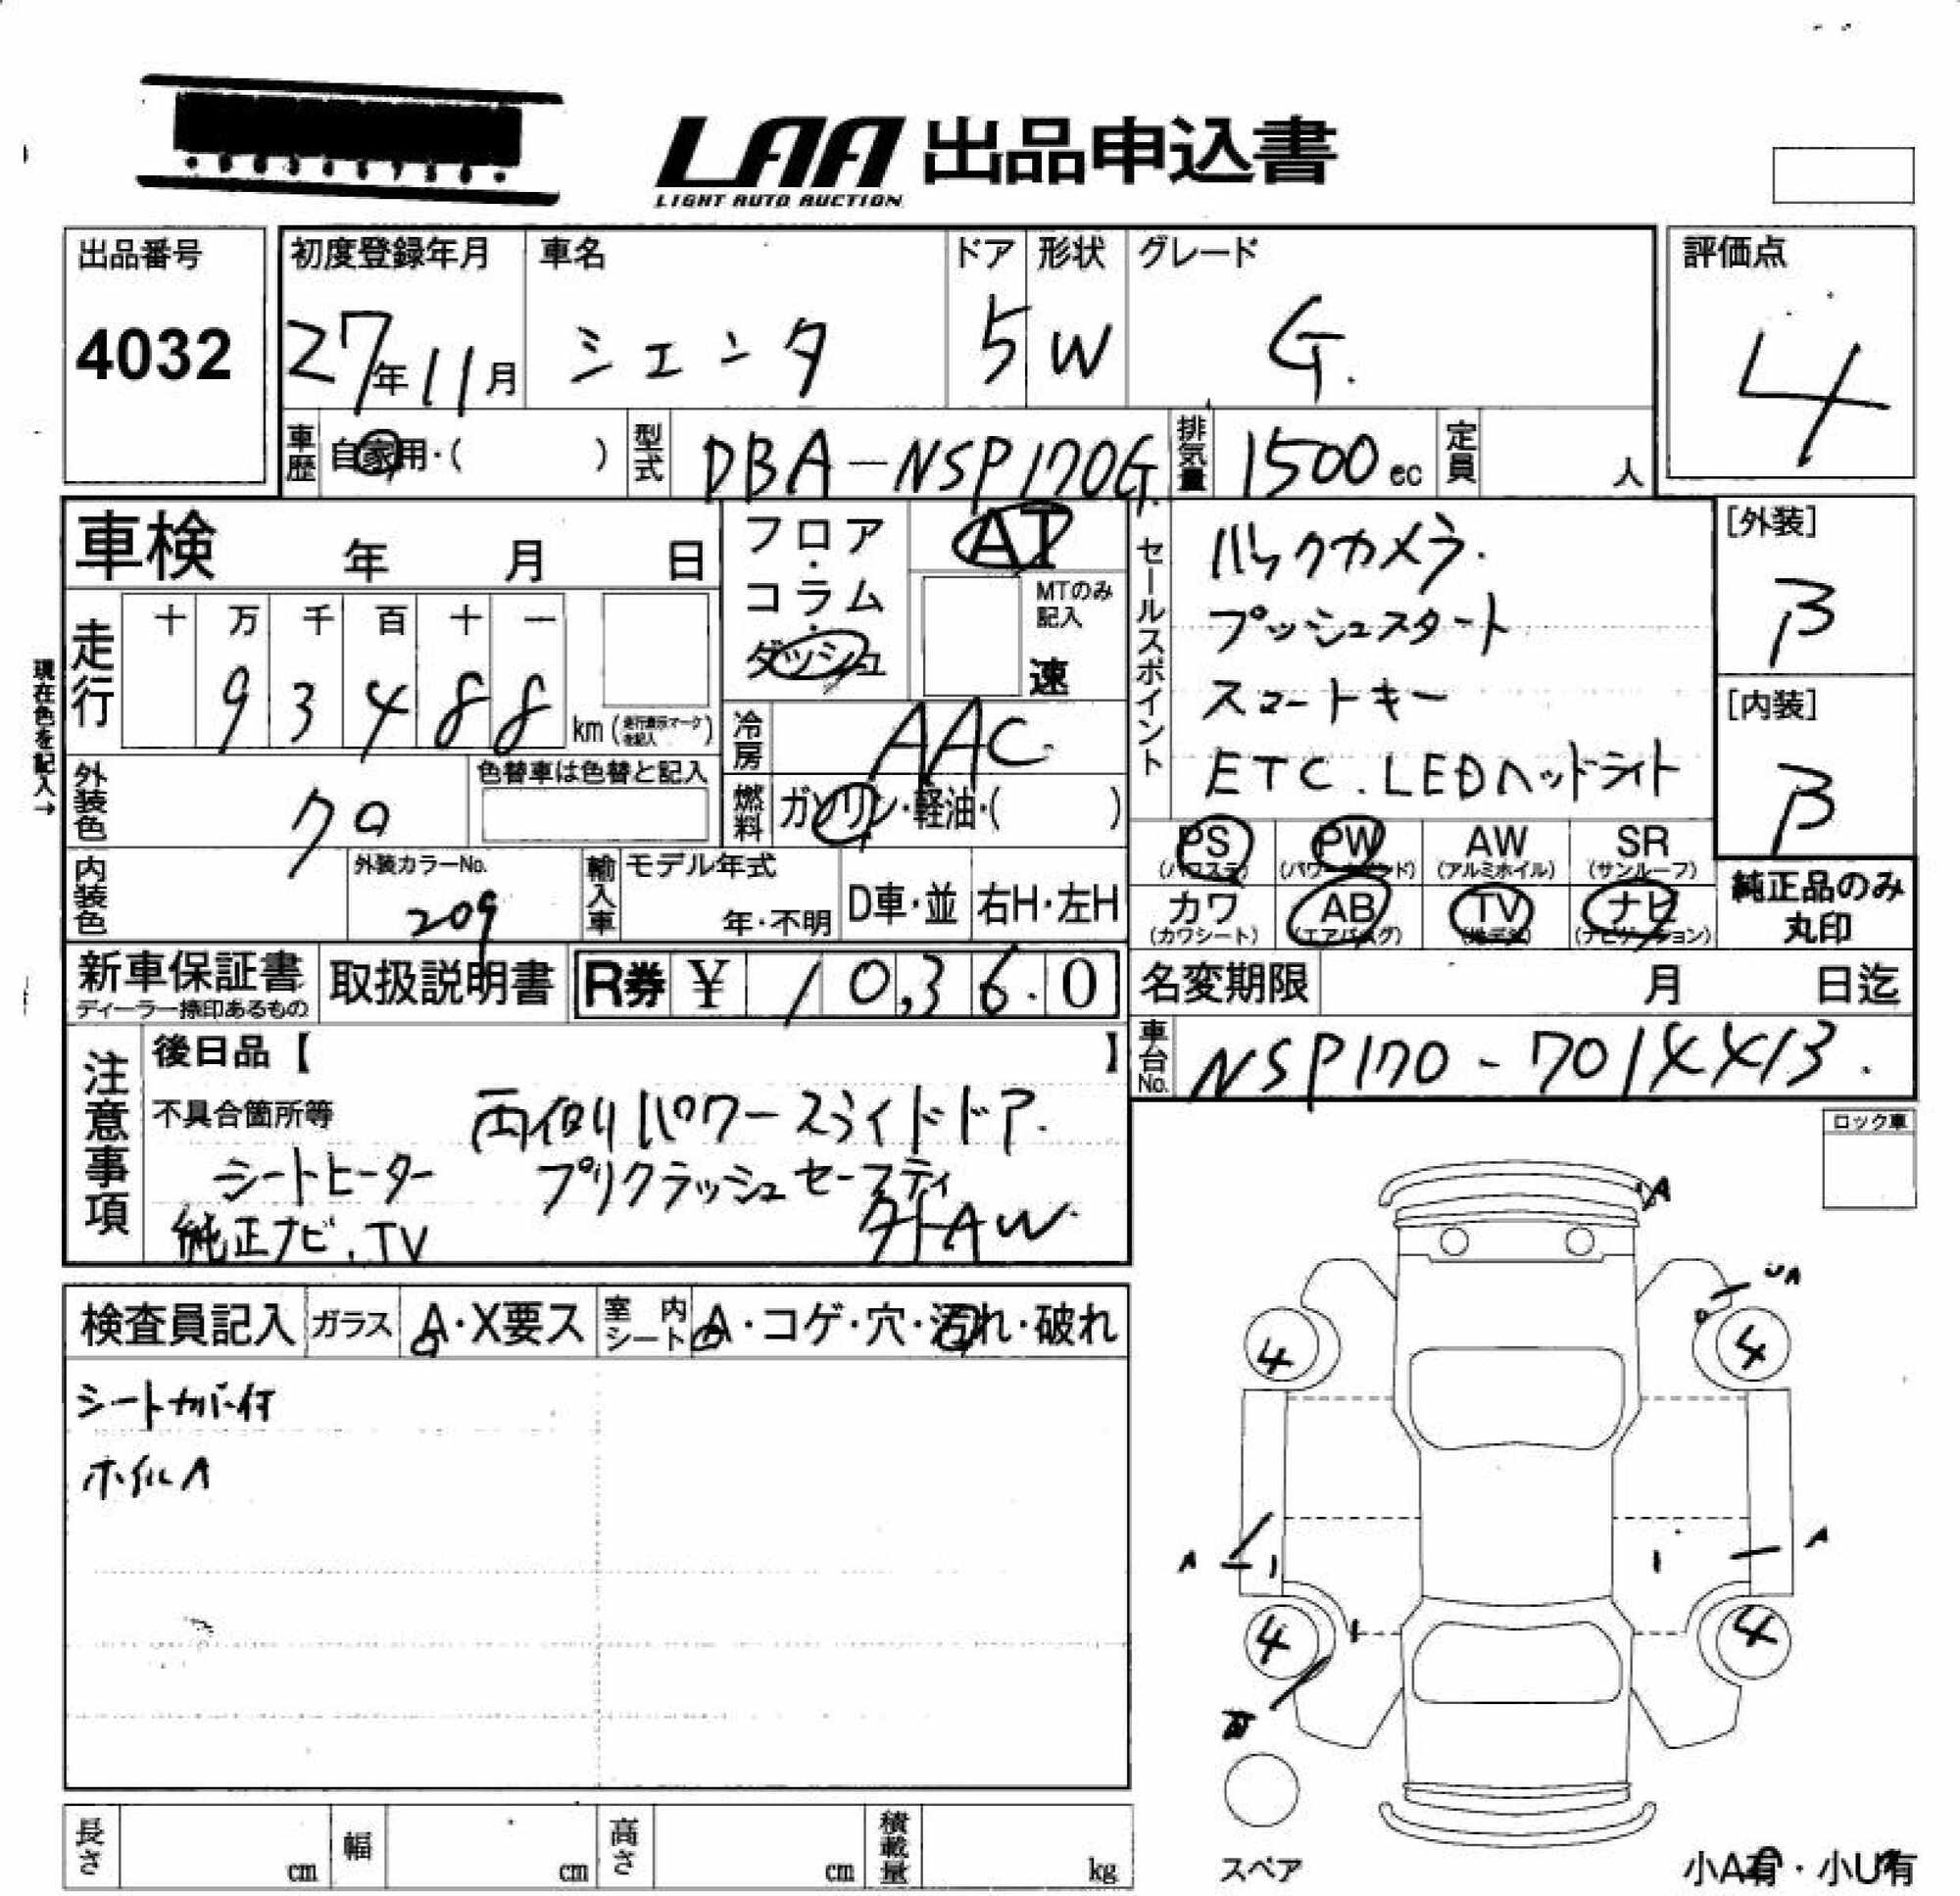 LAA 出品申込書
LIGHT AUTO AUCTION
出品番号
4032
初度登録年月
27年11月
車名
シエンタ
ドア
5
形状
W
グレード
G.
評価点
4
車歴
自家用・( )
型式
DBA-NSP170G
排気量
1500cc
定員
人
車検 年 月 日
フロア・コラム・ダッシュ
AT
MTのみ記入
速
セールスポイント
バックカメラ.
プッシュスタート
スマートキー
ETC.LEDヘッドライト
[外装]
B
[内装]
B
現在色を記入→
走行
十 万 千 百 十 一
9 3 4 8 8
km (走行表示マークを記入)
冷房
AAC
外装色
クロ
色替車は色替と記入
燃料
ガソリン・軽油・( )
PS (パワステ)
PW (パワーウインド)
AW (アルミホイル)
SR (サンルーフ)
カワ (カワシート)
AB (エアバッグ)
TV (テレビ)
ナビ (ナビゲーション)
純正品のみ丸印
内装色
外装カラーNo.
209
輸入車
モデル年式
年・不明
D車・並
右H・左H
新車保証書
ディーラー捺印あるもの
取扱説明書
R券 ¥ 10,360
名変期限 月 日迄
車台No.
NSP170-7014413.
注意事項
後日品【 】
不具合箇所等
両側パワースライドドア.
シートヒーター プリクラッシュセーフティ
純正ナビ.TV 外AW.
ロック車
検査員記入
ガラス
A・X要ス
室内シート
A・コゲ・穴・汚れ・破れ
シートカバー付
ホイルA
A
UA
4
4
A
A
4
4
スペア
小A有・小U有
長さ cm
幅 cm
高さ cm
積載量 kg